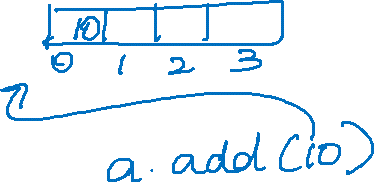 10
0 1 2 3
a. add (10)